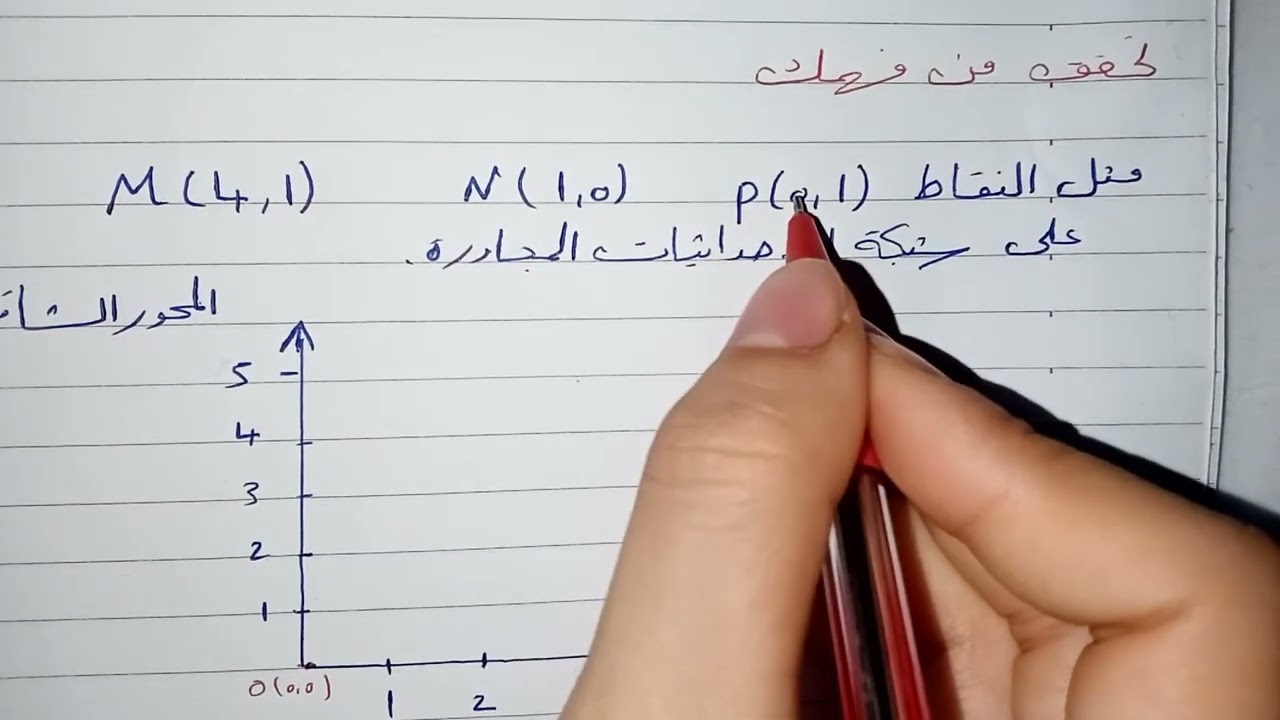 تحقق من فهمك
مثل النقاط P(0,1) N(1,0) M(4,1)
على شبكة الإحداثيات المجاورة.
المحور
5
4
3
2
1
O(0,0)
1 2